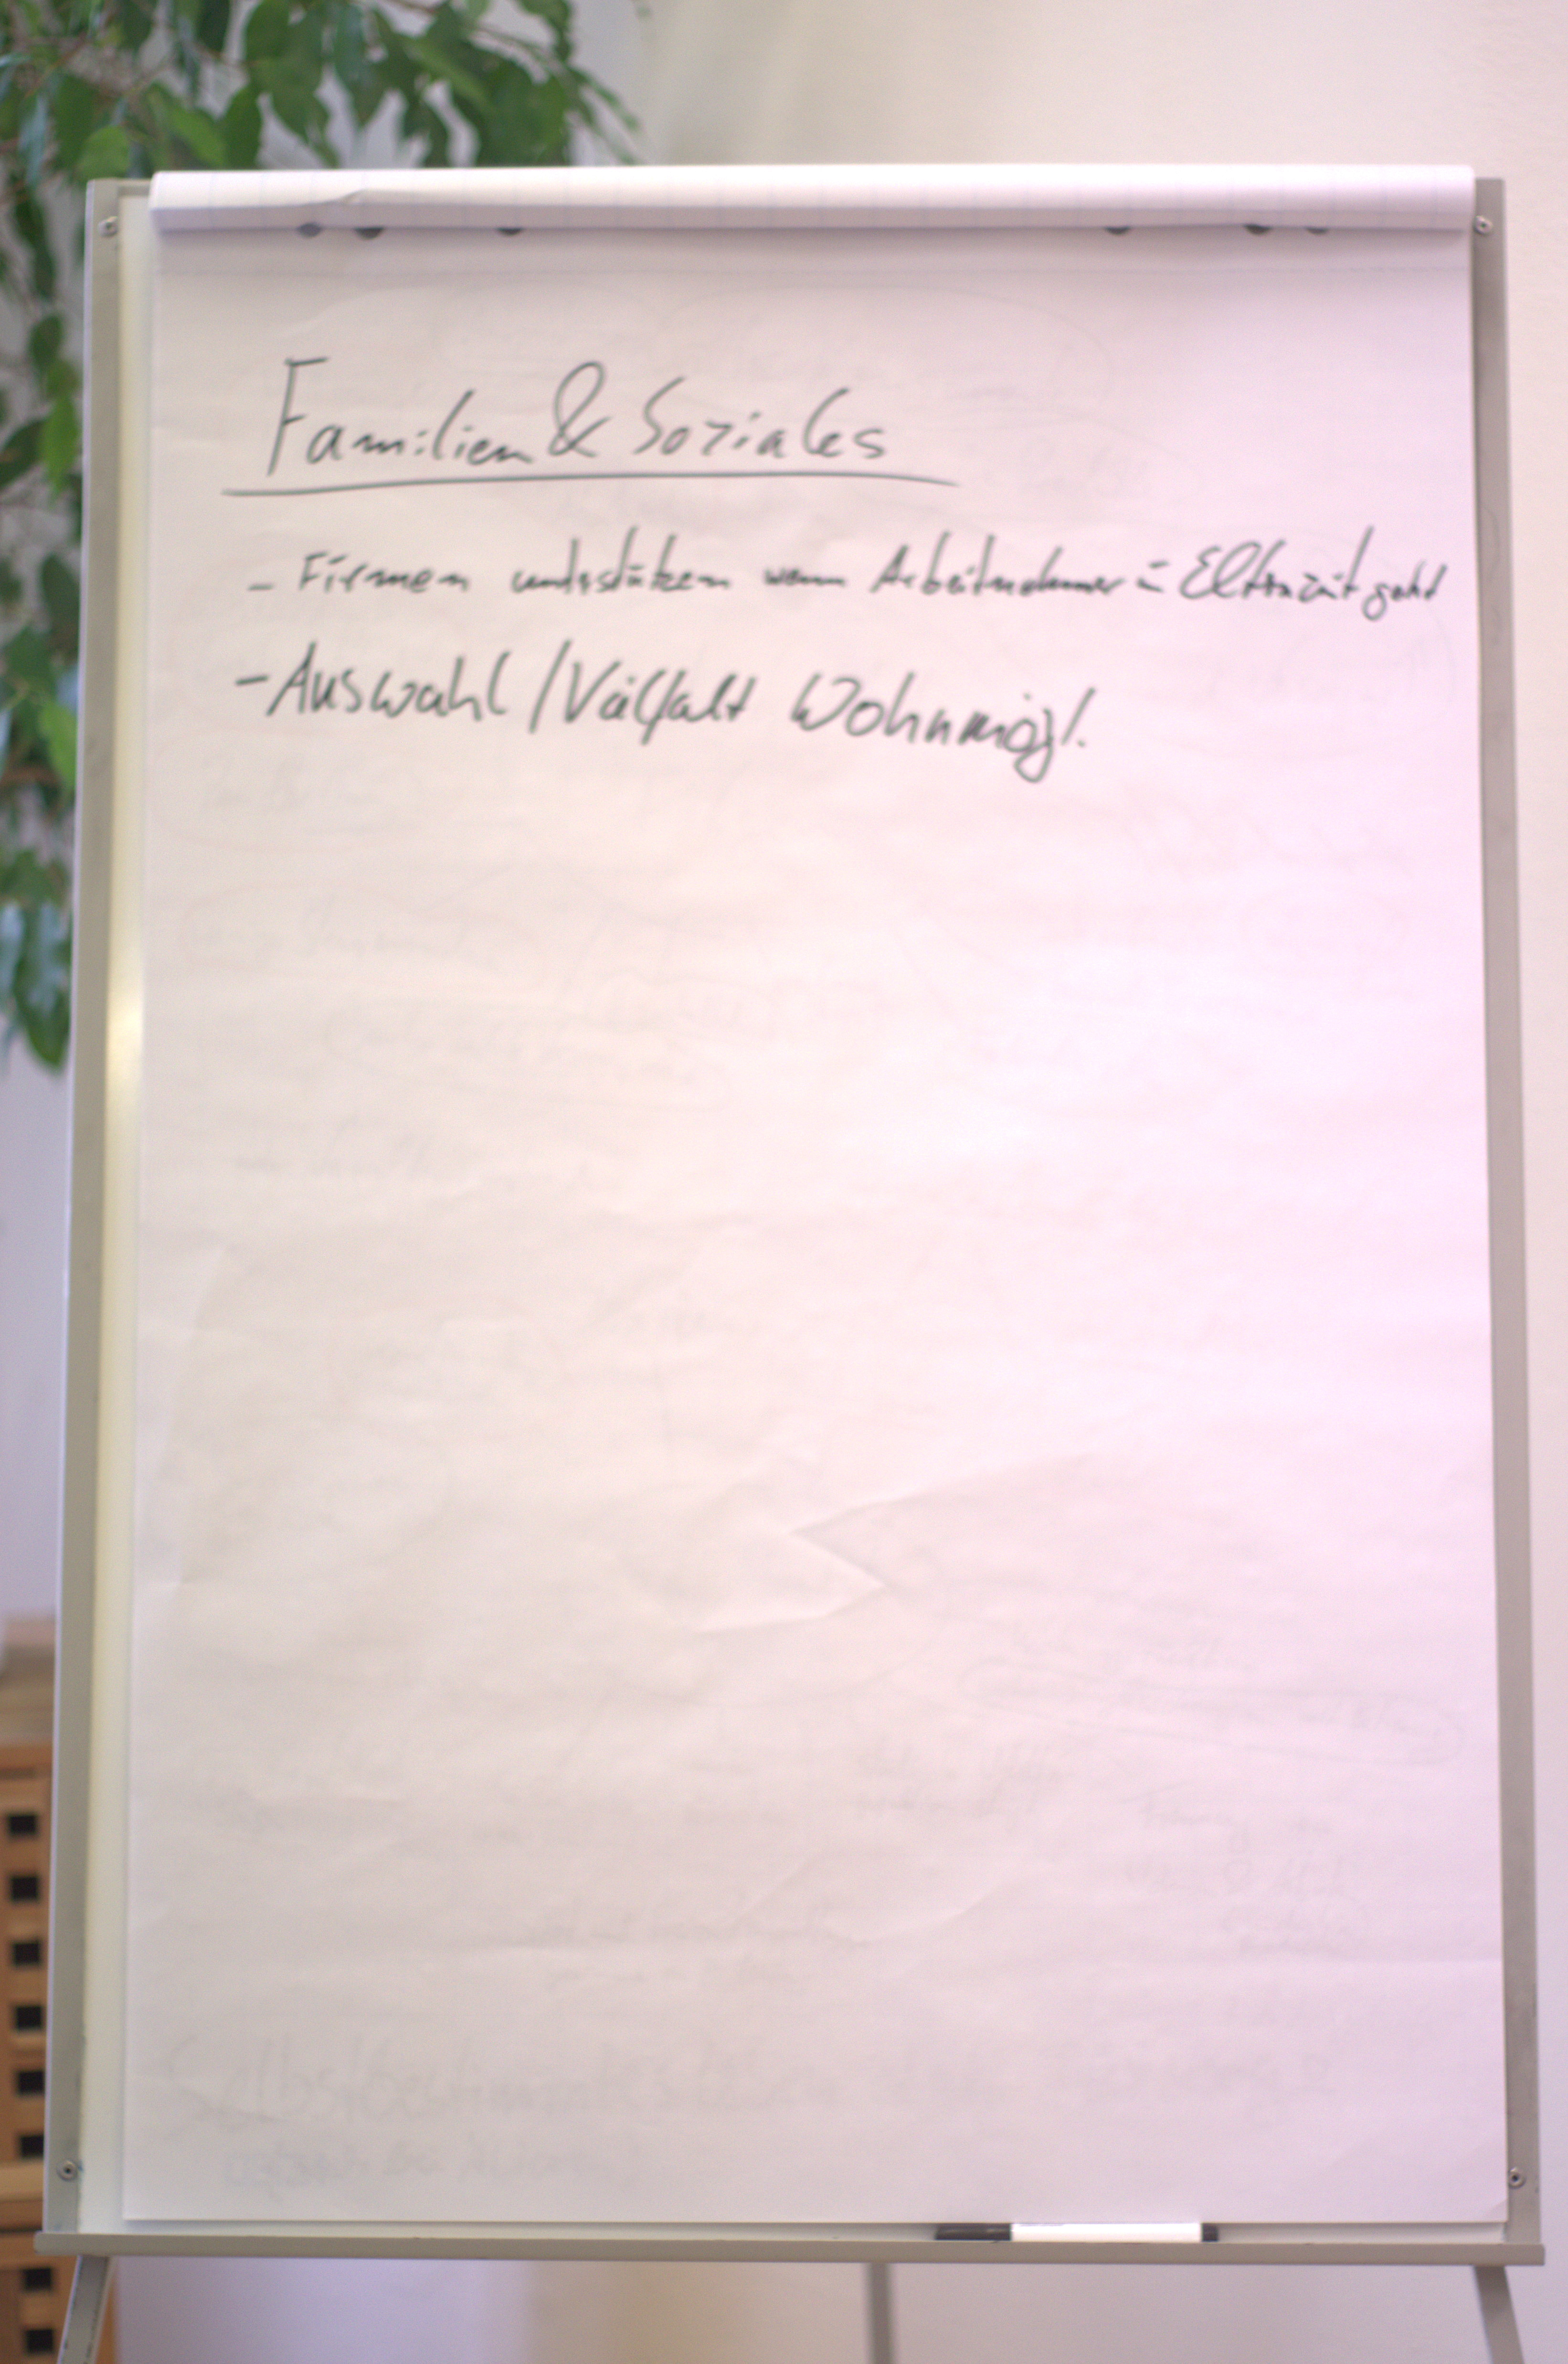 Familien & Soziales
- Firmen unterstützen wenn Arbeitnehmer in Elternzeit geht
- Auswahl / Vielfalt Wohnmögl.